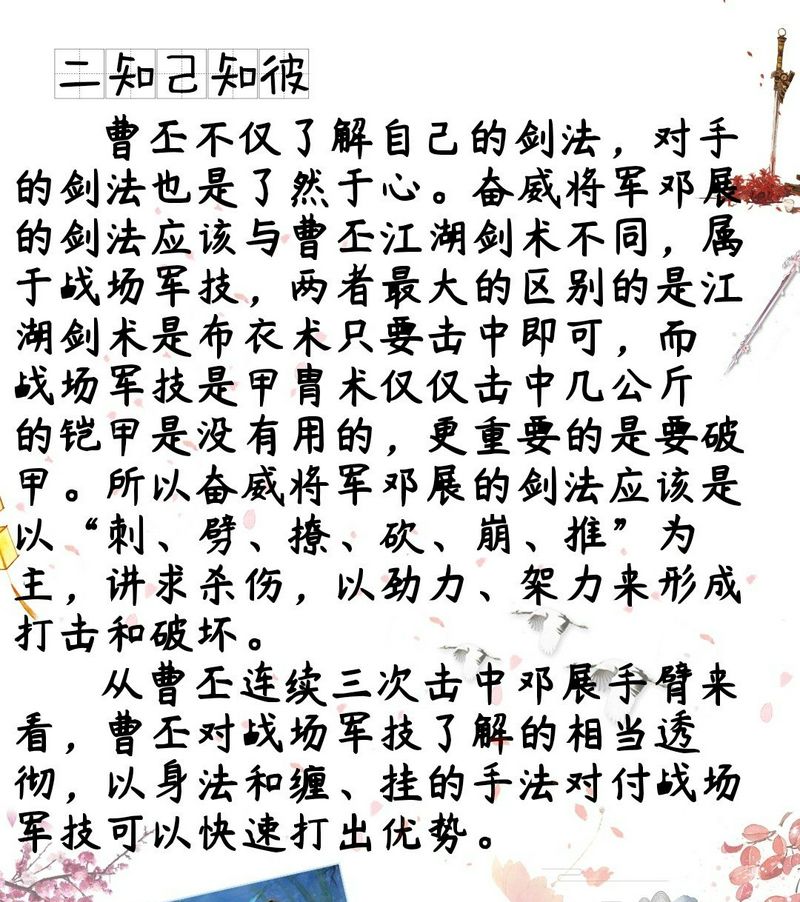 二知己知彼
曹丕不仅了解自己的剑法，对手
的剑法也是了然于心。奋威将军邓展
的剑法应该与曹丕江湖剑术不同，属
于战场军技，两者最大的区别的是江
湖剑术是布衣术只要击中即可，而
战场军技是甲胄术仅仅击中几公斤
的铠甲是没有用的，更重要的是要破
甲。所以奋威将军邓展的剑法应该是
以“刺、劈、撩、砍、崩、推”为
主，讲求杀伤，以劲力、架力来形成
打击和破坏。
从曹丕连续三次击中邓展手臂来
看，曹丕对战场军技了解的相当透
彻，以身法和缠、挂的手法对付战场
军技可以快速打出优势。